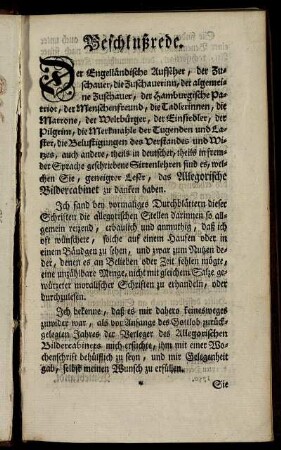 Beschlußrede.
Der Engelländische Aufseher, der Zu-
schauer, die Zuschauerinn, der algemei-
ne Zuschauer, der Hamburgische Pa-
triot, der Menschenfreund, die Tadlerinnen, die
Matrone, der Weltbürger, der Einsiedler, der
Pilgrim, die Merkmahle der Tugenden und La-
ster, die Belustigungen des Verstandes und Wi-
tzes, auch andere, theils in deutscher, theils in frem-
der Sprache geschriebene Sittenlehren sind es, wel-
chen Sie, geneigter Leser, das Allegorische
Bildercabinet zu danken haben.
Ich fand bey vormaligen Durchblättern dieser
Schriften die allegorischen Stellen darinnen so all-
gemein reizend, erbaulich und anmuthig, daß ich
oft wünschete, solche auf einem Haufen oder in
einem Bändgen zu sehen, und zwar zum Nutzen de-
rer, denen es an Belieben oder Zeit fehlen mögte,
eine unzählbare Menge, nicht mit gleichem Salze ge-
würzeter moralischer Schriften zu erhandeln, oder
durchzulesen.
Ich bekenne, daß es mir dahero keinesweges
zuwider war, als vor Anfange des Gottlob zurück-
gelegten Jahres der Verleger des Allegorischen
Bildercabinets mich ersuchte, ihm mit einer Wo-
chenschrift behülflich zu seyn, und mir Gelegenheit
gab, selbst meinen Wunsch zu erfüllen.
Sie